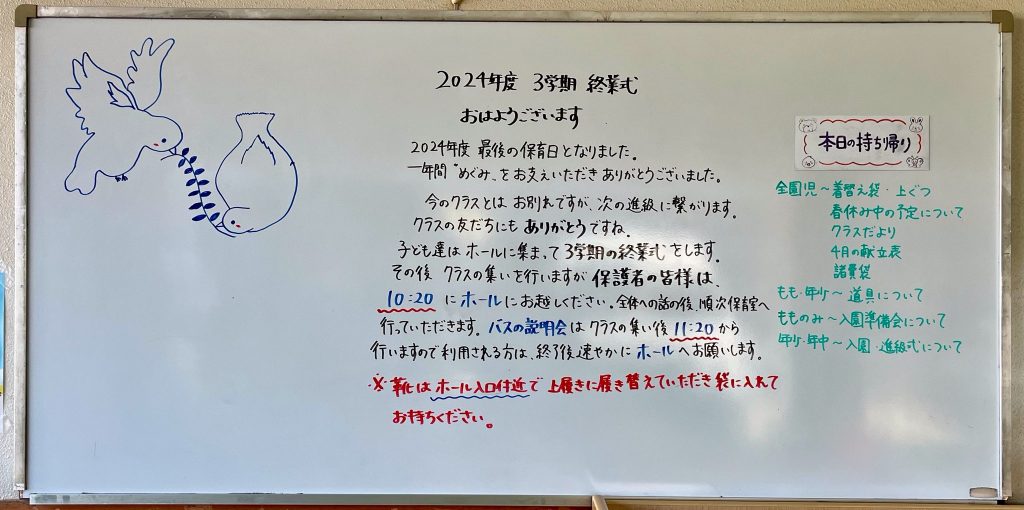 2024年度 3学期 終業式
おはようございます
2024年度 最後の保育日となりました。
一年間 "めぐみ"をお支えいただき ありがとうございました。
今のクラスとは お別れですが、次の進級に繋がります。
クラスの友だちにも ありがとうですね。
子ども達は ホールに集まって 3学期の終業式をします。
その後 クラスの集いを行いますが 保護者の皆様は、
10:20 に ホールにお越しください。全体への話の後、順次保育室へ
行っていただきます。バスの説明会 は クラスの集い後 11:20 から
行いますので 利用される方は、終了後 速やかに ホール へお願いします。
※ 靴は ホール入口付近で 上履きに履き替えていただき 袋に入れて
お持ちください。
本日の持ち帰り
全園児〜着替え袋・上ぐつ
春休み中の予定について
クラスだより
4月の献立表
諸費袋
もも・年少〜道具について
もものみ〜入園準備会について
年少・年中〜入園・進級式について